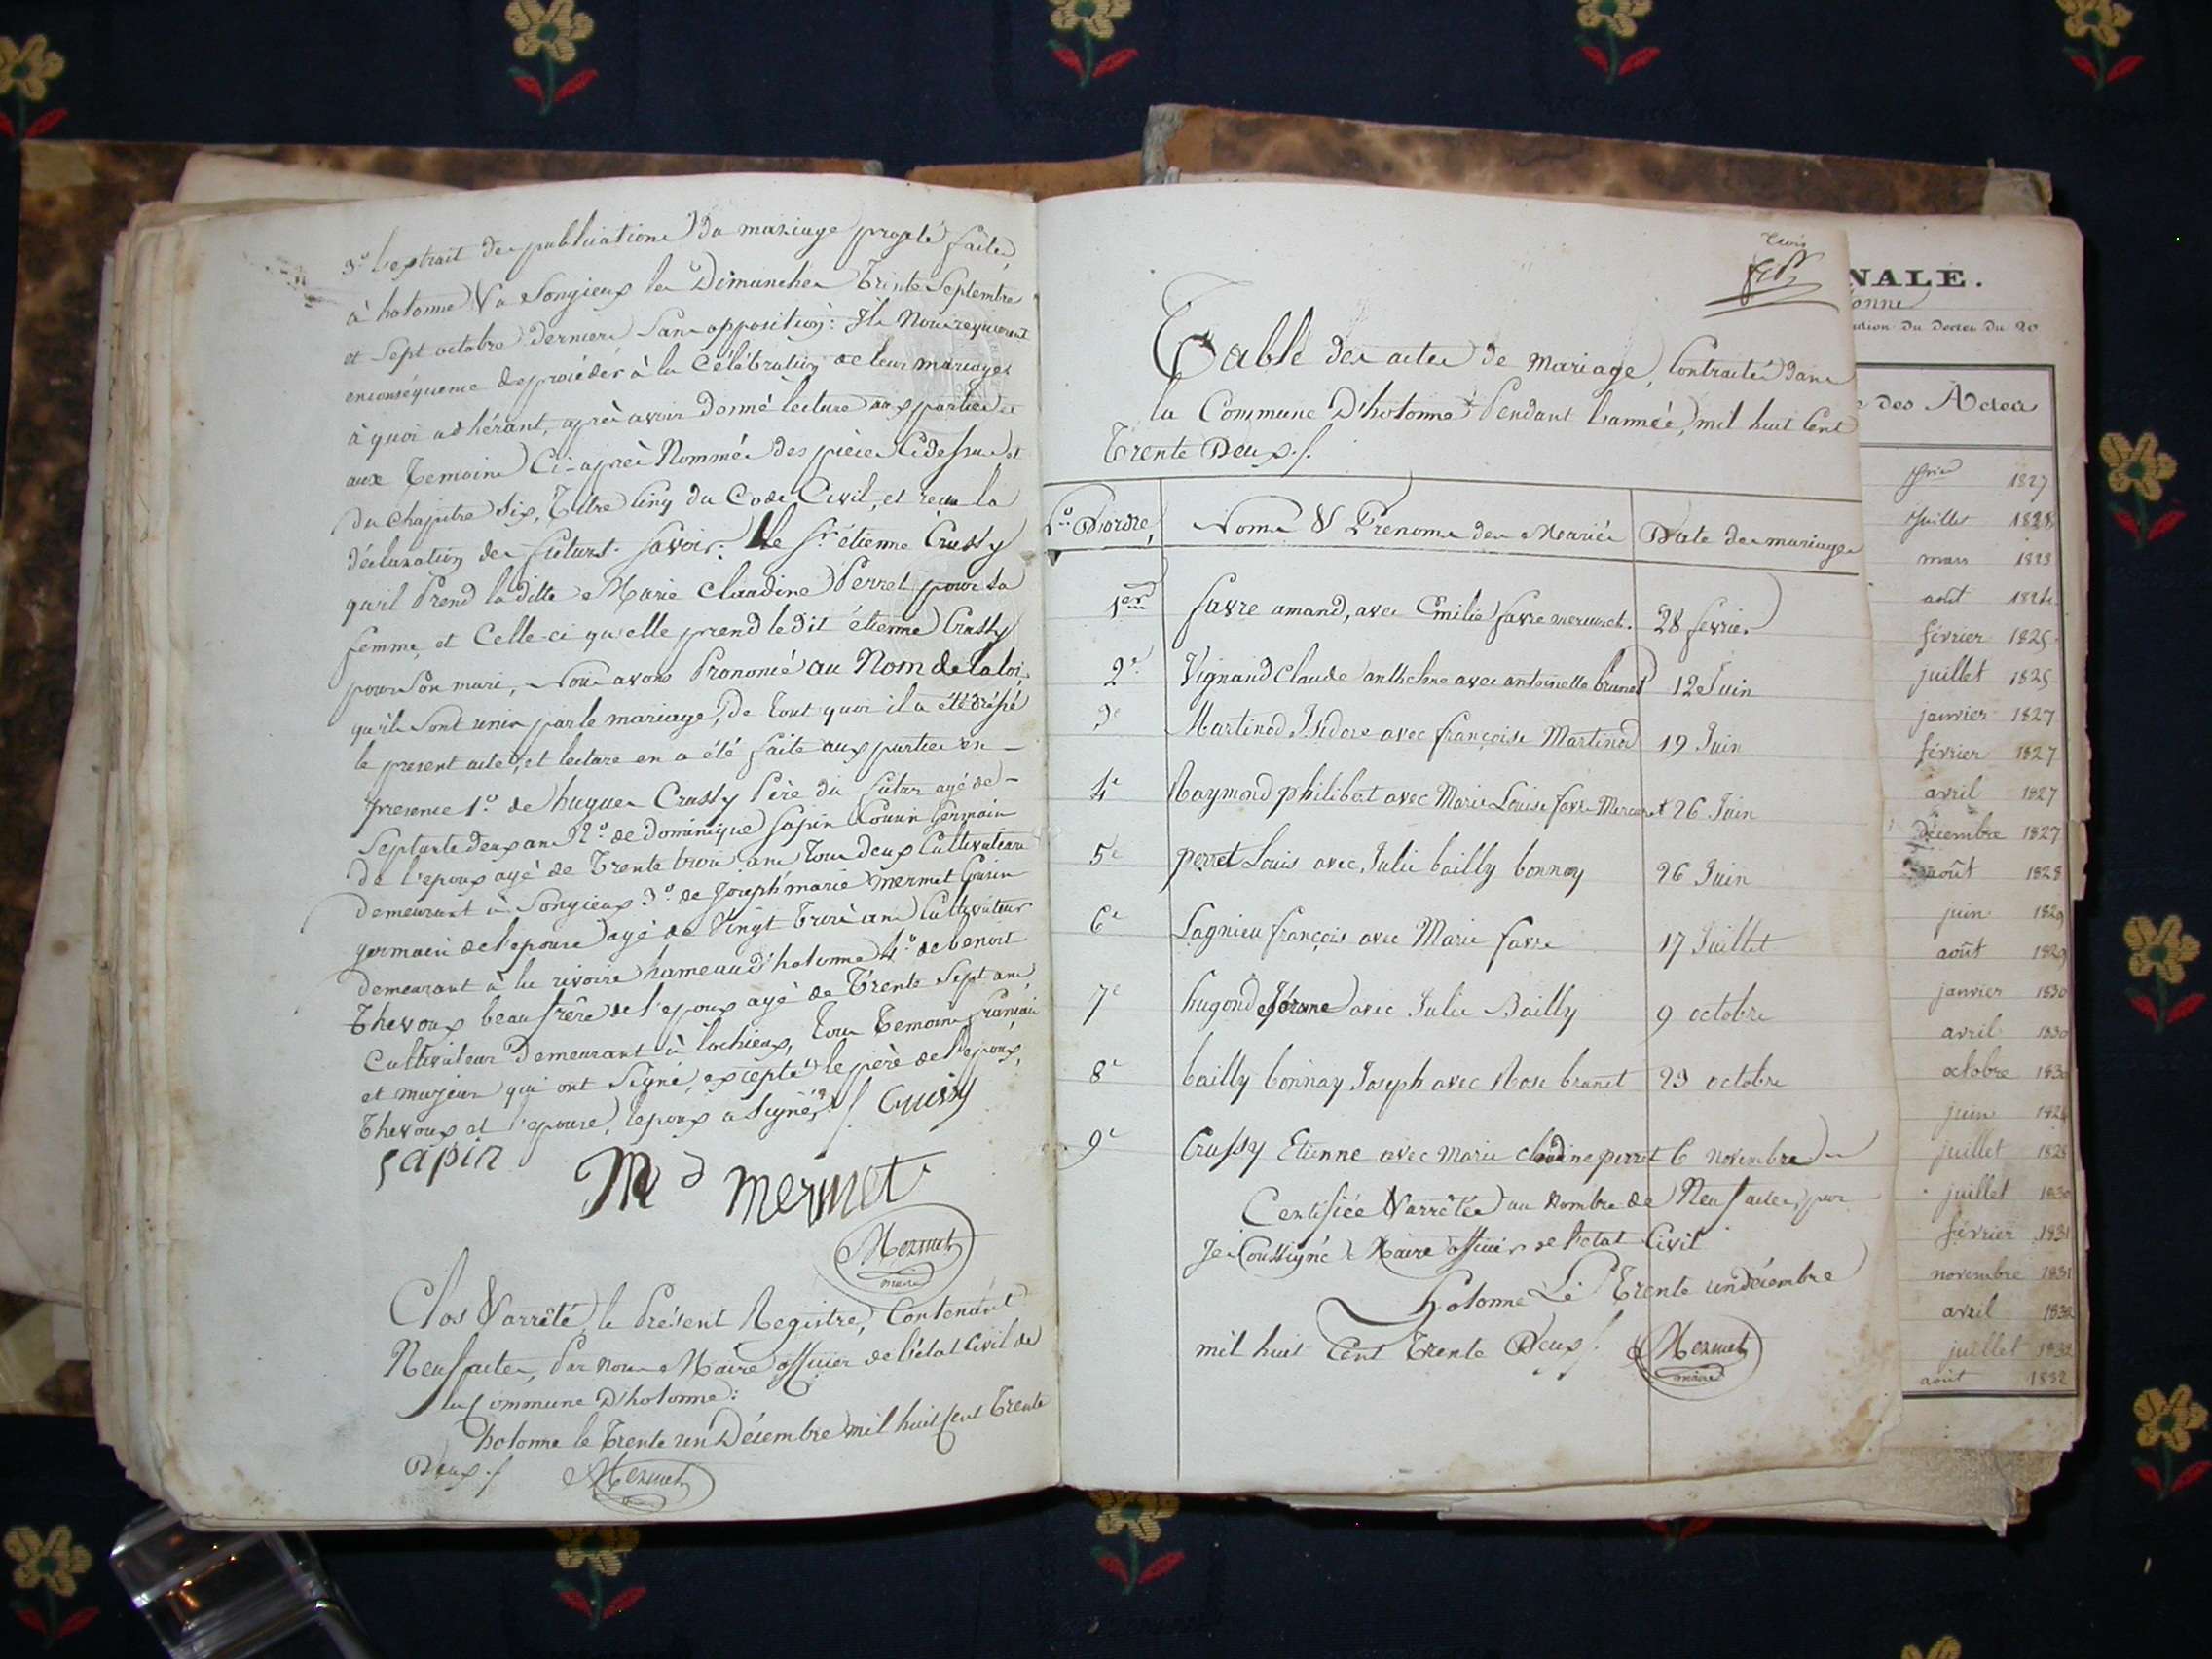 3º l'extrait des publications du mariage projeté faites
à hotonne & a Songieux les Dimanches Trente Septembre
et Sept octobre derniers Sans opposition: Ils Nous requierent
enconséquence deprocéder à la Célébration de leur mariage;
à quoi adhérant, après avoir donné lecture aux parties et
aux Temoins Ci-après Nommés des pièces Cidessus et
du chapitre Six, Titre Cinq du Code Civil, et reçu la
déclaration des futurs. Savoir: Le Sr étienne Crussy
qu'il Prend laditte Marie Claudine Perret pour Sa
femme, et Celle-ci qu'elle prend ledit étienne Crussy
pour Son mari, Nous avons Prononcé au Nom de la loi,
qu'ils Sont unis par le mariage, de tout quoi il a été dréssé
le present acte, et lecture en a été faite aux parties en
presence 1º de hugues Crussy Père du futur agé de
Septante deux ans 2º de dominique Sapin Cousin Germain
de l'epoux agé de Trente trois ans Tous deux Cultivateurs
demeurant à Songieux 3º de Joseph marie Mermet Cousin
germain de l'epouse agé de Vingt Trois ans Cultivateur
demeurant à la rivoire hameau d'hotonne 4º de benoit
Thevoux beau frère de l'epoux agé de Trente Sept ans
Cultivateur demeurant à lochieux, Tous Temoins français
et majeurs qui ont Signé, excepté le père de l'epoux,
Thevoux et l'epouse, l'epoux a Signé./. Crussy
Sapin
Md Mermet
Mermet
maire
Clos & arrêté le Présent Registre, Contenant
Neuf actes, Par nous Maire officier de l'état Civil de
la Commune D'hotonne:
hotonne le Trente un Décembre mil huit Cent Trente
Deux./. Mermet
Trois
Table des actes de Mariage, Contractés dans
la Commune D'hotonne Pendant l'année, mil huit Cent
Trente Deux./.
Nos D'ordre, Noms & Prenoms des Mariés Date des mariages
1er favre amand, avec Emilie favre mercuret. 28 fevrier
2e Vignand Claude anthelme avec antoinette brunet 12 Juin
3e Martinod Isidore avec françoise Martinod 19 Juin
4e Raymond philibert avec Marie Louise favre Mercuret 26 Juin
5e perret Louis avec Julie bailly bonnay 26 Juin
6e Sagnieu françois avec Marie favre 17 Juillet
7e hugond Jérome avec Julie Bailly 9 octobre
8e bailly bonnay Joseph avec Rose brunet 23 octobre
9e Crussy Etienne avec Marie claudine perret 6 novembre
Certifiée & arrêtée au Nombre de Neuf actes, par
Je Soussigné Maire officier de l'etat Civil
hotonne Le Trente un décembre
mil huit Cent Trente Deux./. Mermet
maire
NALE.
onne
ution du décret du 20
des Actes
1827
juillet 1828
mars 1823
août 1824
février 1825
juillet 1825
janvier 1827
février 1827
avril 1827
décembre 1827
août 1828
juin 1829
août 1829
janvier 1830
avril 1830
octobre 1830
juin
juillet
juillet 1830
février 1831
novembre 1831
avril 1832
juillet 1832
août 1832